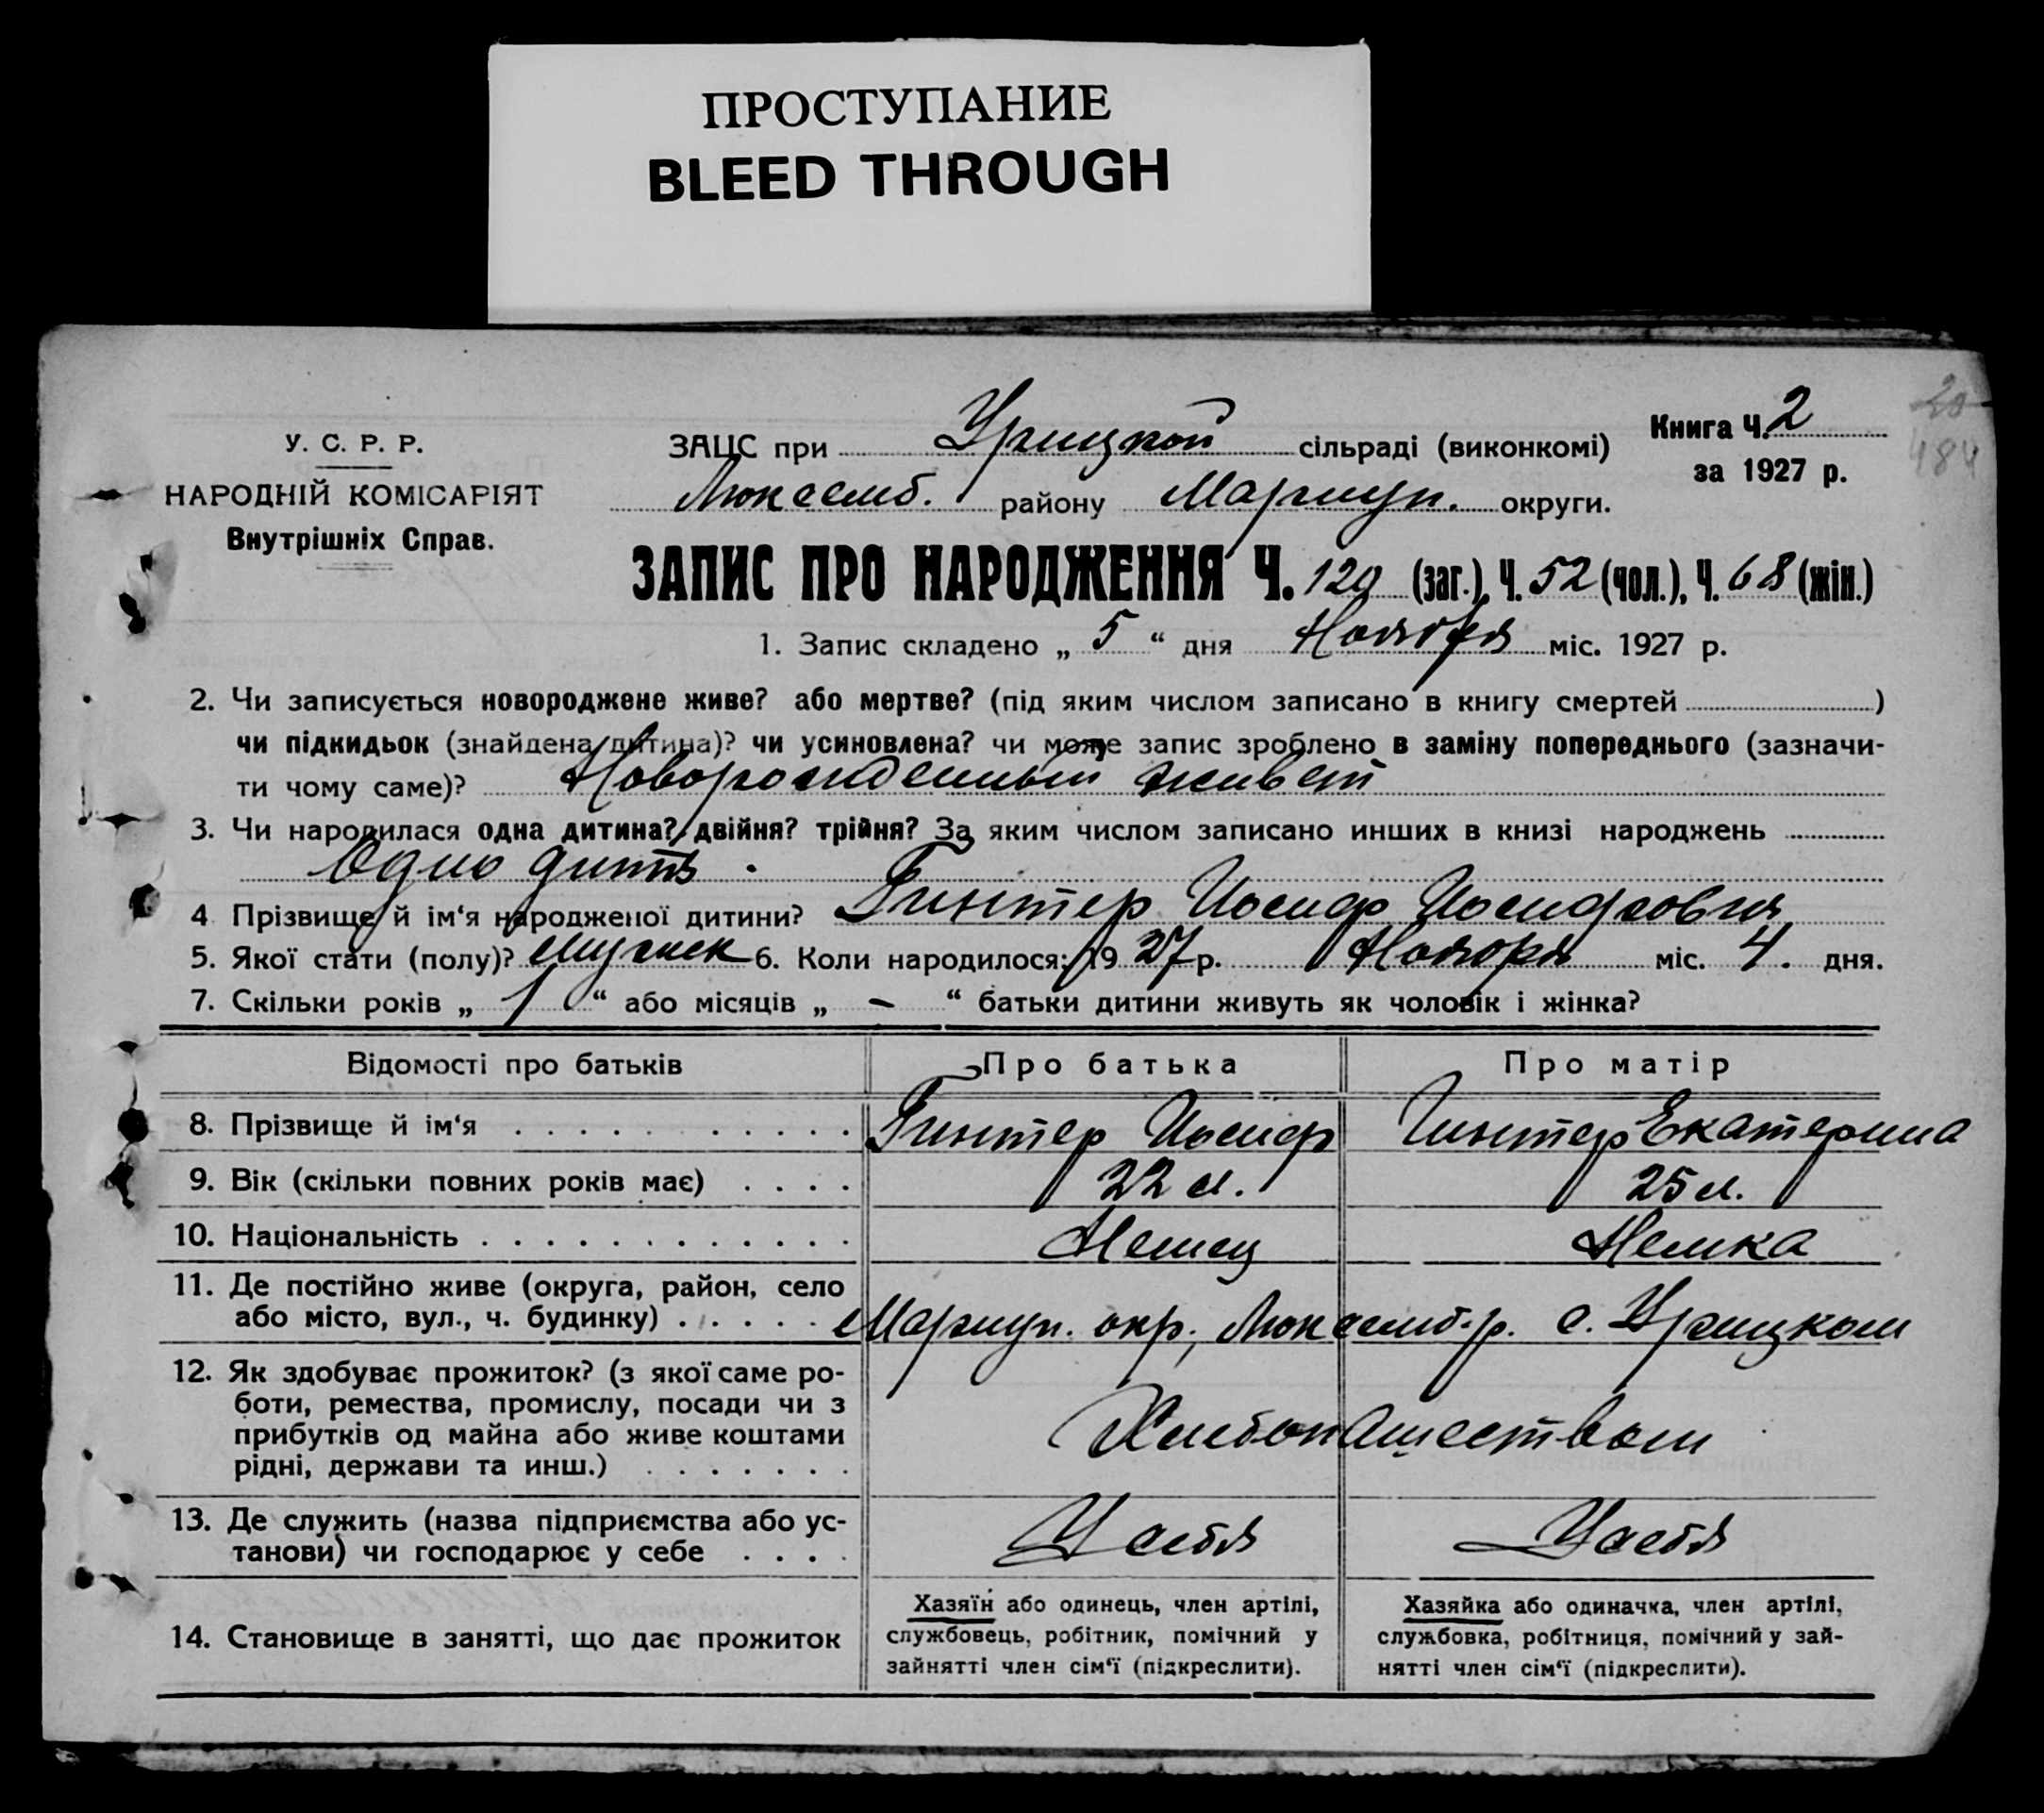 ПРОСТУПАНИЕ
BLEED THROUGH
20
484
У. С. Р. Р.
НАРОДНІЙ КОМІСАРІЯТ
Внутрішніх Справ.
ЗАЦС при Урицкой сільраді (виконкомі)
Книга Ч. 2
за 1927 р.
Люксемб. району Мариуп. округи.
ЗАПИС ПРО НАРОДЖЕННЯ Ч. 120 (заг.), Ч. 52 (чол.), Ч. 68 (жін.)
1. Запис складено „ 5 “ дня Ноября міс. 1927 р.
2. Чи записується новороджене живе? або мертве? (під яким числом записано в книгу смертей )
чи підкидьок (знайдена дитина)? чи усиновлена? чи може запис зроблено в заміну попереднього (зазначи-
ти чому саме)? Новорожденный живет
3. Чи народилася одна дитина? двійня? трійня? За яким числом записано инших в книзі народжень
Одно дитя.
4 Прізвище й ім‘я народженої дитини? Гинтер Иосиф Иосифович
5. Якої стати (полу)? мужск 6. Коли народилося: 1927 р. Ноября міс. 4. дня.
7. Скільки років „ 1 “ або місяців „ – “ батьки дитини живуть як чоловік і жінка?
Відомості про батьків Про батька Про матір
8. Прізвище й ім‘я Гинтер Иосиф Гинтер Екатерина
9. Вік (скільки повних років має) 22 л. 25 л.
10. Національність Немец Немка
11. Де постійно живе (округа, район, село
або місто, вул., ч. будинку) Мариуп. окр., Люксемб. р. с. Урицком
12. Як здобуває прожиток? (з якої саме ро-
боти, ремества, промислу, посади чи з
прибутків од майна або живе коштами
рідні, держави та инш.)
Хлебопашеством
13. Де служить (назва підприємства або ус-
танови) чи господарює у себе
У себя У себя
14. Становище в занятті, що дає прожиток
Хазяїн або одинець, член артілі,
службовець, робітник, помічний у
зайнятті член сім‘ї (підкреслити).
Хазяйка або одиначка, член артілі,
службовка, робітниця, помічний у зай-
нятті член сім‘ї (підкреслити).